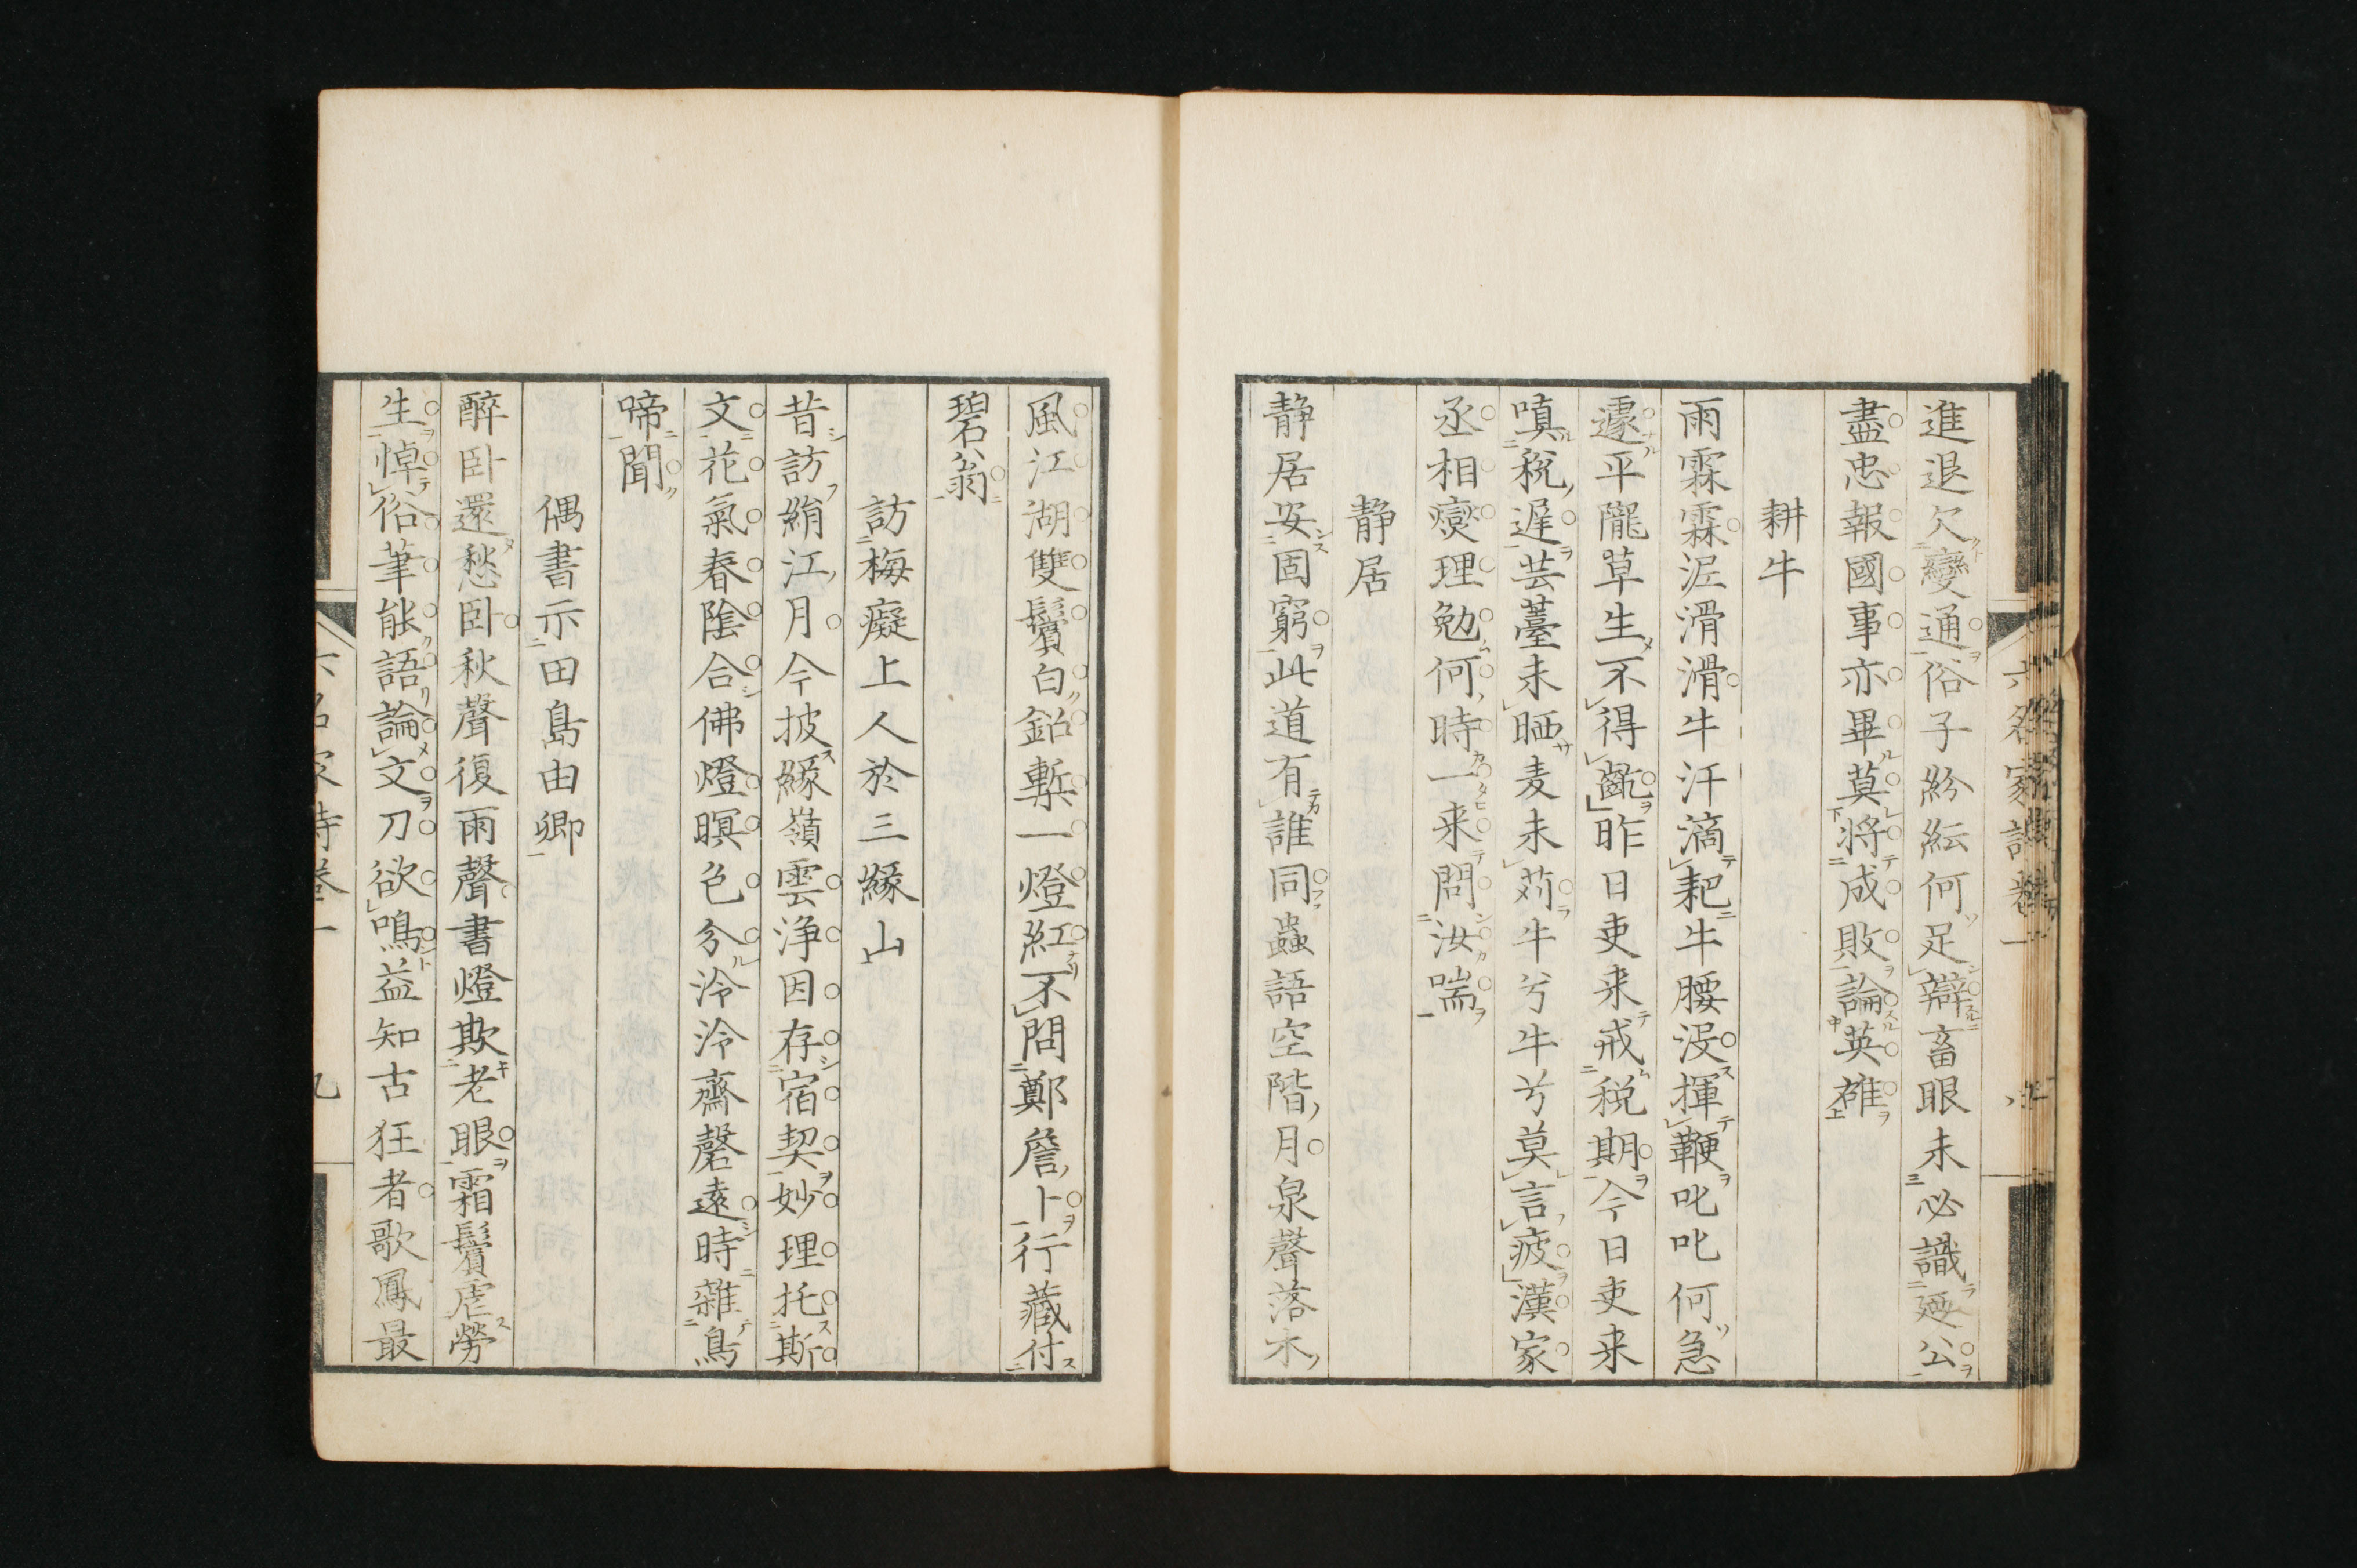 進退欠變通俗子紛紜何足辯畜眼未必識廻公
盡忠報國事亦畢莫將成敗論英雄
耕牛
雨霖霖泥滑滑牛汗滴耙牛腰没揮鞭叱叱何急
遽平隴草生不得齕昨日吏来戒税期今日吏来
嗔税遅芸薹未晒麦未苅牛兮牛兮莫言疲漢家
丞相燮理勉何時一来問汝喘
静居
静居安固窮此道有誰同蟲語空階月泉聲落木
六名家詩卷一
風江湖雙鬢白鉛槧一燈紅不問鄭詹卜行藏付
碧翁
訪梅癡上人於三緣山
昔訪絹江月今披緣嶺雲浄因存宿契妙理托斯
文花氣春陰合佛燈暝色分泠泠齋磬遠時雜鳥
啼聞
偶書示田島由卿
醉臥還愁臥秋聲復雨聲書燈欺老眼霜鬢虐勞
生悼俗筆能語論文刀欲鳴益知古狂者歌鳳最
六名家詩卷一
九